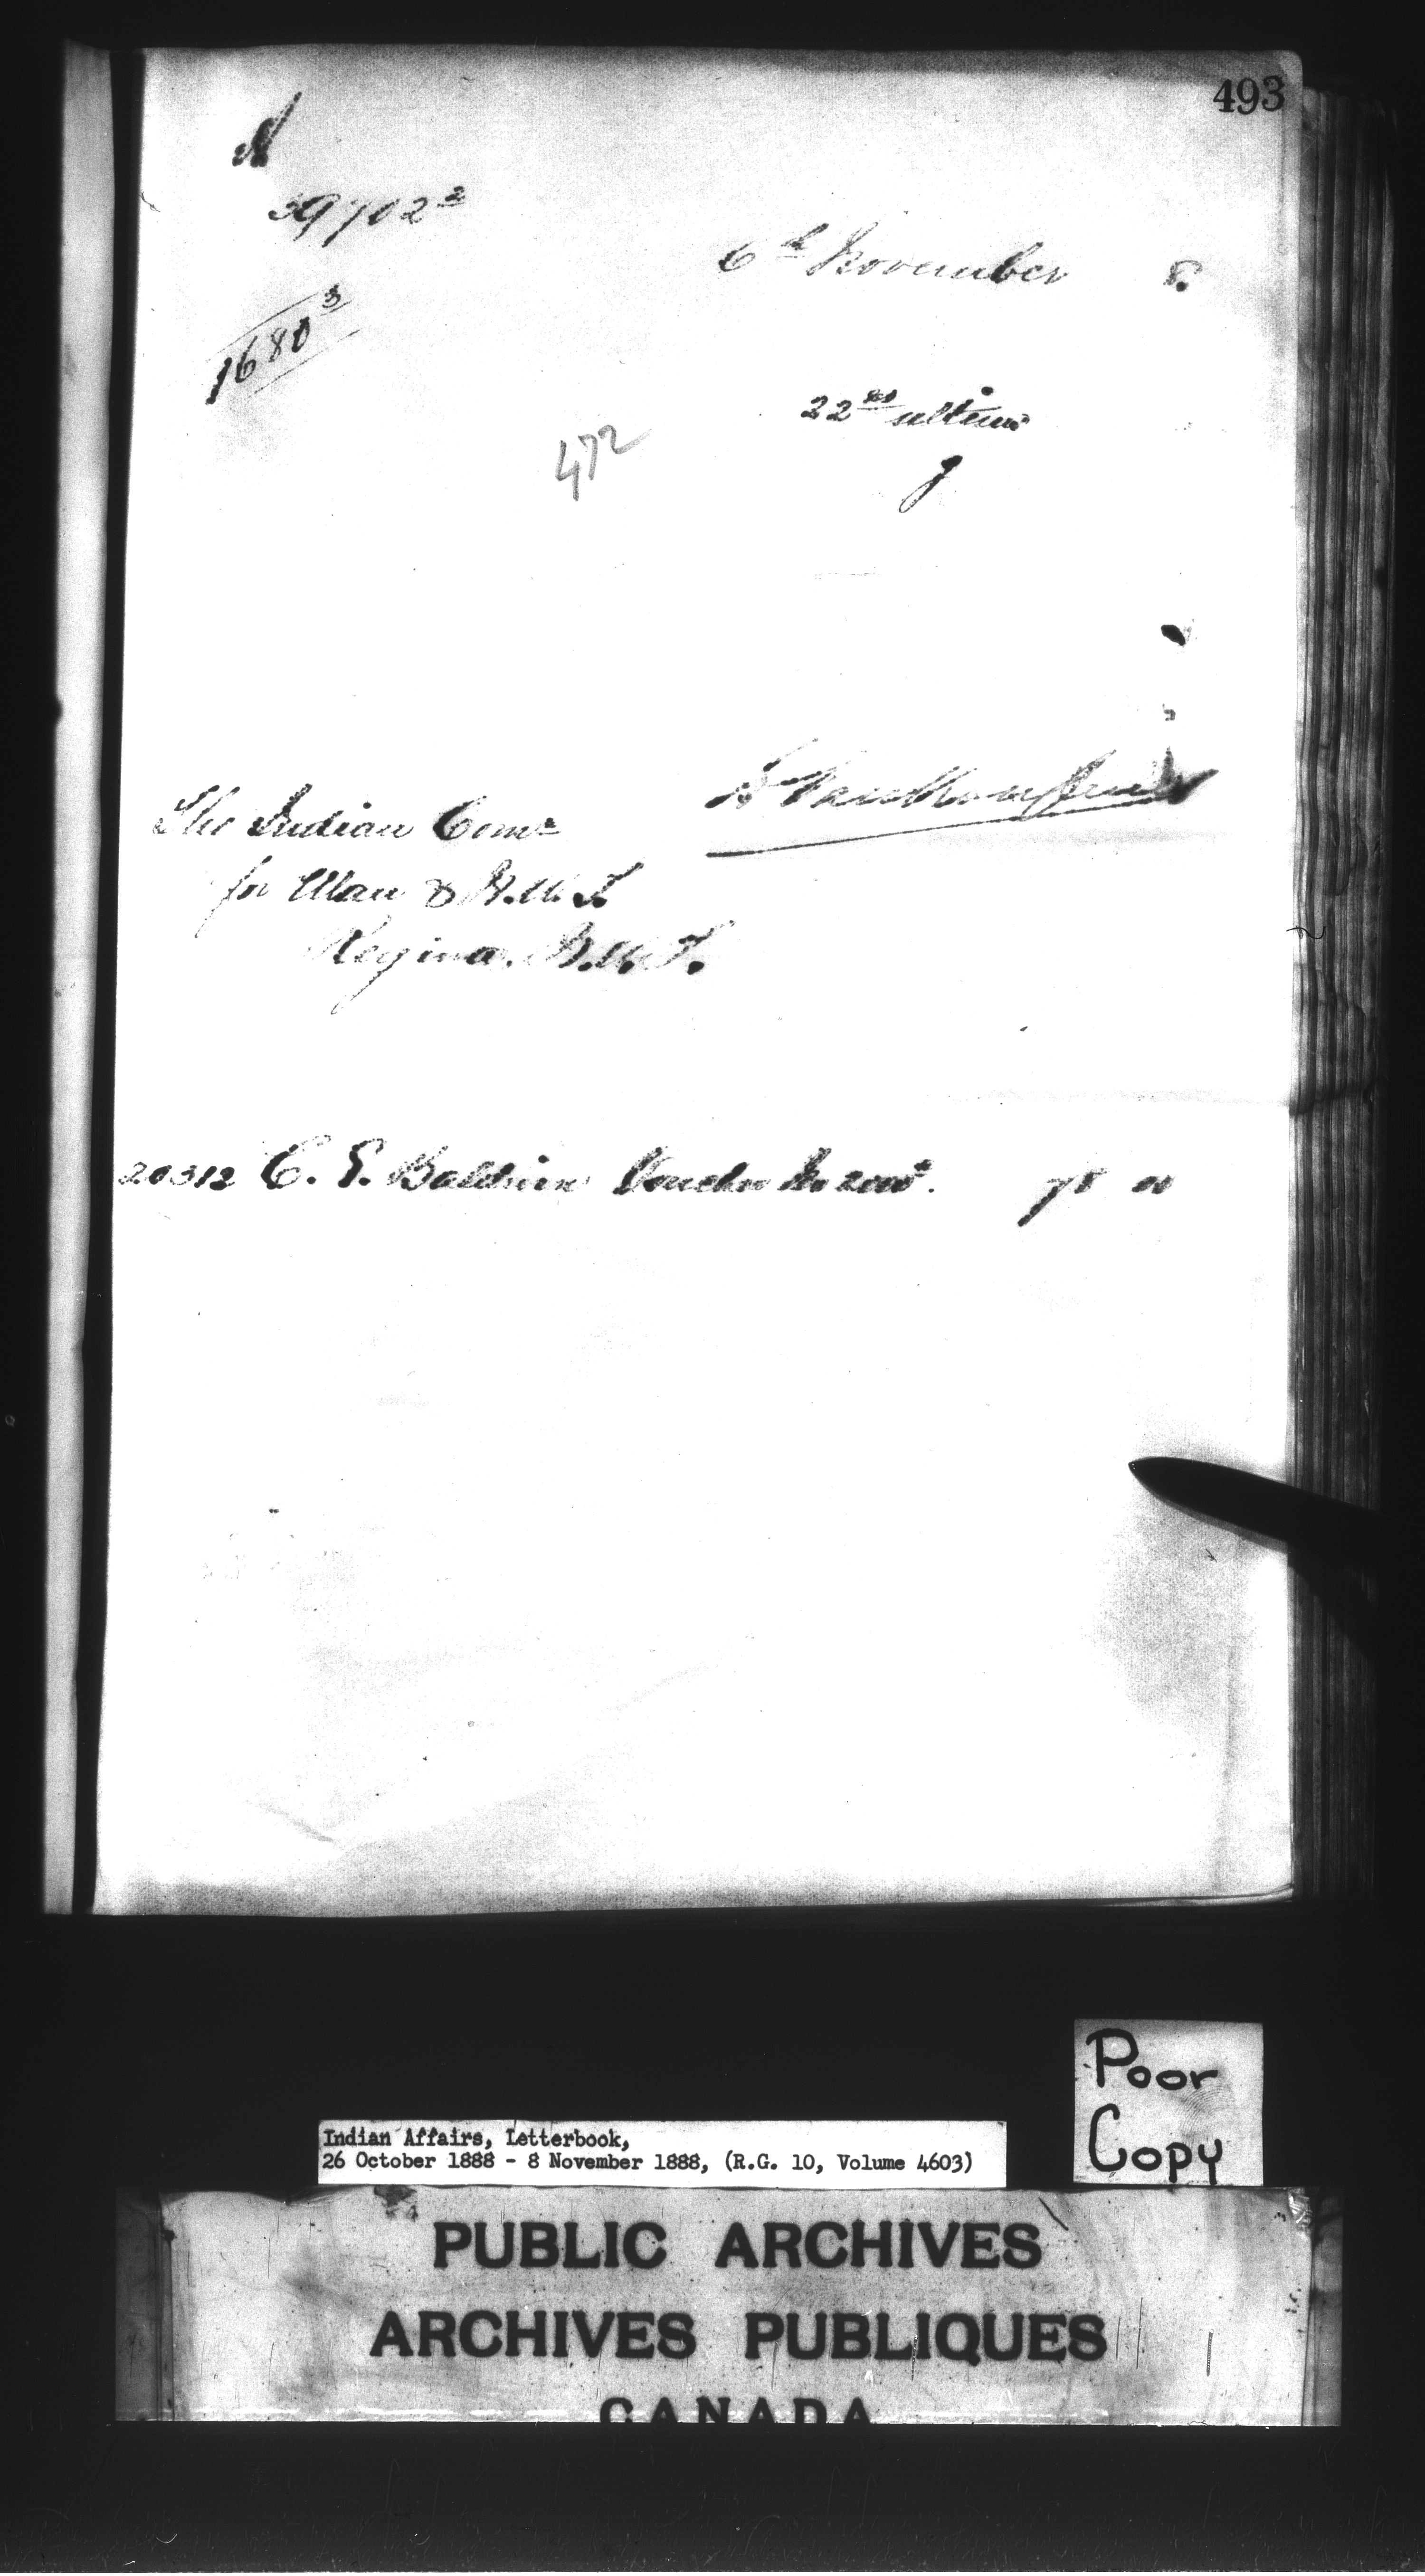 493
A
397022
6th November 8.
16803
22nd ultimo
472
L. VanKoughnet
The Indian Comr
for Man & N.W.T.
Regina. N.W.T.
20312 C. E. Baldwin Voucher No 2000. 78 00
Poor
Copy
Indian Affairs, Letterbook,
26 October 1888 - 8 November 1888, (R.G. 10, Volume 4603)
PUBLIC ARCHIVES
ARCHIVES PUBLIQUES
CANADA